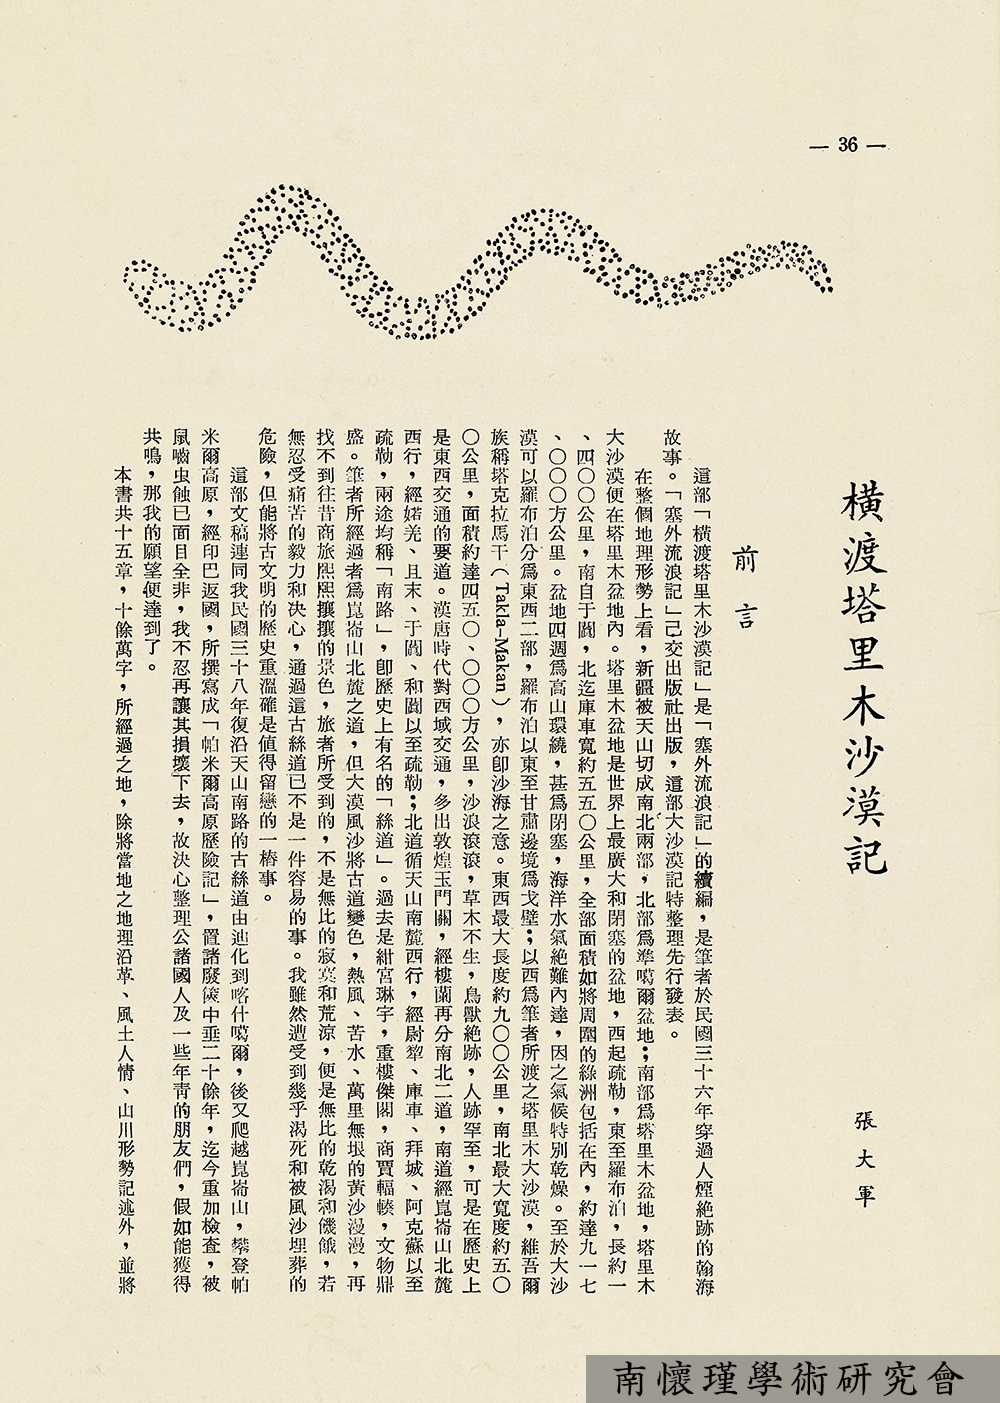 — 36 —
橫渡塔里木沙漠記
張大軍
前言
這部「橫渡塔里木沙漠記」是「塞外流浪記」的續編，是筆者於民國三十六年穿過人煙絶跡的翰海
故事。「塞外流浪記」己交出版社出版，這部大沙漠記特整理先行發表。
在整個地理形勢上看，新疆被天山切成南北兩部，北部爲準噶爾盆地；南部爲塔里木盆地，塔里木
大沙漠便在塔里木盆地內。塔里木盆地是世界上最廣大和閉塞的盆地，西起疏勒，東至羅布泊，長約一
、四〇〇公里，南自于闐，北迄庫車寬約五五〇公里，全部面積如將周圍的綠洲包括在內，約達九一七
、〇〇〇方公里。盆地四週爲高山環繞，甚爲閉塞，海洋水氣絶難內達，因之氣候特別乾燥。至於大沙
漠可以羅布泊分爲東西二部，羅布泊以東至甘肅邊境爲戈壁；以西爲筆者所渡之塔里木大沙漠，維吾爾
族稱塔克拉馬干（Takla-Makan），亦卽沙海之意。東西最大長度約九〇〇公里，南北最大寬度約五〇
〇公里，面積約達四五〇、〇〇〇方公里，沙浪滾滾，草木不生，鳥獸絶跡，人跡罕至，可是在歷史上
是東西交通的要道。漢唐時代對西域交通，多出敦煌玉門關，經樓蘭再分南北二道，南道經崑崙山北麓
西行，經婼羌、且末、于闐、和闐以至疏勒；北道循天山南麓西行，經尉犂、庫車、拜城、阿克蘇以至
疏勒，兩途均稱「南路」，卽歷史上有名的「絲道」。過去是紺宮琳宇，重樓傑閣，商賈輻輳，文物鼎
盛。筆者所經過者爲崑崙山北麓之道，但大漠風沙將古道變色，熱風、苦水、萬里無垠的黃沙漫漫，再
找不到往昔商旅熙熙攘攘的景色，旅者所受到的，不是無比的寂寞和荒涼，便是無比的乾渴和饑餓，若
無忍受痛苦的毅力和決心，通過這古絲道已不是一件容易的事。我雖然遭受到幾乎渴死和被風沙埋葬的
危險，但能將古文明的歷史重溫確是值得留戀的一樁事。
這部文稿連同我民國三十八年復沿天山南路的古絲道由迪化到喀什噶爾，後又爬越崑崙山，攀登帕
米爾高原，經印巴返國，所撰寫成「帕米爾高原歷險記」，置諸廢篋中垂二十餘年，迄今重加檢査，被
鼠嚙虫蝕已面目全非，我不忍再讓其損壞下去，故決心整理公諸國人及一些年靑的朋友們，假如能獲得
共鳴，那我的願望便達到了。
本書共十五章，十餘萬字，所經過之地，除將當地之地理沿革、風土人情、山川形勢記述外，並將
南懷瑾學術研究會